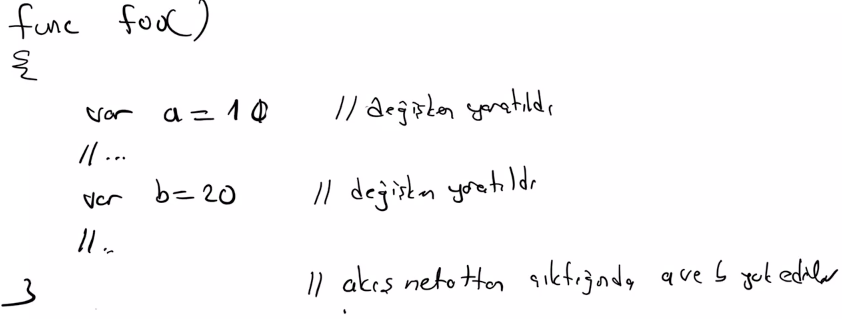 func foo()
{
var a = 10 // değişken yaratıldı
//...
var b = 20 // değişken yaratıldı
//..
} // akış metottan çıktığında a ve b yok edilir